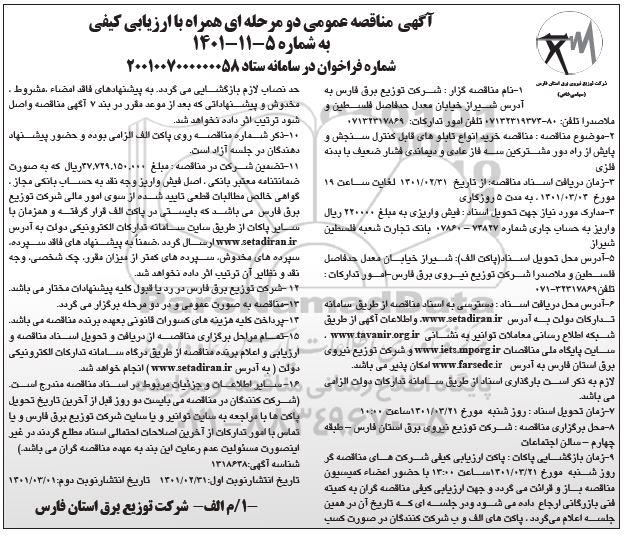 آگهی مناقصه عمومی دو مرحله ای همراه با ارزیابی کیفی
به شماره ۵-۱۱-۱۴۰۱
شماره فراخوان در سامانه ستاد ۲۰۰۱۰۰۷۰۰۰۰۰۰۰۵۸
شرکت توزیع نیروی برق استان فارس
(سهامی خاص)
۱-نام مناقصه گزار : شرکت توزیع برق فارس به
آدرس شیراز خیابان معدل حدفاصل فلسطین و
ملاصدرا تلفن: ۸۰-۰۷۱۳۲۳۱۹۳۷۳ تلفن امور تدارکات: ۰۷۱۳۲۳۱۷۸۶۹
۲-موضوع مناقصه : مناقصه خرید انواع تابلو های قابل کنترل سنجش و
پایش از راه دور مشترکین سه فاز عادی و دیماندی فشار ضعیف با بدنه
فلزی
۳-زمان دریافت اسناد مناقصه: از تاریخ ۱۴۰۱/۰۲/۳۱ لغایت ساعت ۱۹
مورخ ۱۴۰۱/۰۳/۰۳ ، به مدت ۵ روزکاری
۴-مدارک مورد نیاز جهت تحویل اسناد : فیش واریزی به مبلغ ۲۲۰۰۰۰ ریال
واریز به حساب جاری شماره ۷۳۸۴۷-۰۷۸۶۰ بانک تجارت شعبه فلسطین
شیراز
۵-آدرس محل تحویل اسناد(پاکت الف): شیراز خیابان معدل حدفاصل
فلسطین و ملاصدرا شرکت توزیع نیروی برق فارس-امور تدارکات :
تلفن۳۲۳۱۷۸۶۹-۰۷۱
۶-آدرس محل دریافت اسناد : دسترسی به اسناد مناقصه از طریق سامانه
تدارکات دولت به آدرس www.setadiran.ir. واطلاعات آگهی از طریق
شبکه اطلاع رسانی معاملات توانیر به نشانی www.tavanir.org.ir .
سایت پایگاه ملی مناقصات www.iets.mporg.ir و شرکت توزیع نیروی
برق استان فارس به آدرس www.farsedc.ir امکان پذیر می باشد.
لازم به ذکر است بارگذاری اسناد از طریق سامانه تدارکات دولت الزامی
می باشد.
۷-زمان تحویل اسناد : روز شنبه مورخ ۱۴۰۱/۰۳/۲۱ساعت ۱۰:۰۰
۸-محل برگزاری مناقصه : شرکت توزیع نیروی برق استان فارس – طبقه
چهارم – سالن اجتماعات
۹-زمان بازگشایی پاکات : پاکت ارزیابی کیفی شرکت های مناقصه گر
روز شنبه مورخ ۱۴۰۱/۰۳/۲۱ساعت ۱۳:۰۰ با حضور اعضاء کمیسیون
مناقصه باز و قرائت می گردد و جهت ارزیابی کیفی مناقصه گران به کمیته
فنی بازرگانی ارجاع داده می شود ودر جلسه ای که تاریخ آن در همین
جلسه اعلام می‌گردد ، پاکت های الف و ب شرکت کنندگان در صورت کسب
حد نصاب لازم بازگشایی می گردد. به پیشنهادهای فاقد امضاء ،مشروط ،
مخدوش و پیشنهاداتی که بعد از موعد مقرر در بند ۷ آگهی مناقصه واصل
شود ترتیب اثر داده نخواهد شد.
۱۰-ذکر شماره مناقصه روی پاکت الف الزامی بوده و حضور پیشنهاد
دهندگان در جلسه آزاد است.
۱۱-تضمین شرکت در مناقصه : مبلغ ۳۷,۷۲۹,۱۵۰,۰۰۰ریال که به صورت
ضمانتنامه معتبر بانکی ، اصل فیش واریز وجه نقد به حساب بانکی مجاز ،
گواهی خالص مطالبات قطعی تایید شده از سوی امور مالی شرکت توزیع
برق فارس می باشد که بایستی در پاکت الف قرار گرفته و همزمان با
سایر پاکات از طریق سایت سامانه تدارکات الکترونیکی دولت به آدرس
www.setadiran.ir ارسال گردد .ضمناً به پیشنهاد های فاقد سپرده،
سپرده های مخدوش، سپرده های کمتر از میزان مقرر، چک شخصی، وجه
نقد و نظایر آن ترتیب اثر داده نخواهد شد.
۱۲-شرکت توزیع برق فارس در رد یا قبول کلیه پیشنهادات مختار می باشد.
۱۳-مناقصه به صورت عمومی و در دو مرحله برگزار می گردد.
۱۴-پرداخت کلیه هزینه های کسورات قانونی بعهده برنده مناقصه می باشد.
۱۵-تمام مراحل برگزاری مناقصه از دریافت و تحویل اسناد مناقصه و
ارزیابی و اعلام برنده مناقصه از طریق درگاه سامانه تدارکات الکترونیکی
دولت ( به آدرس www.setadiran.ir ) انجام خواهد شد.
۱۶- سایر اطلاعات و جزئیات مربوط در اسناد مناقصه مندرج است.
(شرکت کنندگان در مناقصه می بایست دو روز قبل از آخرین تاریخ تحویل
پاکت ها با مراجعه به سایت توانیر و یا سایت شرکت توزیع برق فارس و یا
تماس با امور تدارکات از آخرین اصلاحات احتمالی اسناد مطلع گردند در غیر
اینصورت مسئولیت عدم رعایت این بند به عهده مناقصه گران می باشد.)
شناسه آگهی:۱۳۱۸۶۳۸
تاریخ انتشارنوبت اول:۱۴۰۱/۰۲/۳۱ تاریخ انتشارنوبت دوم:۱۴۰۱/۰۳/۰۱
۱/م الف- شرکت توزیع برق استان فارس